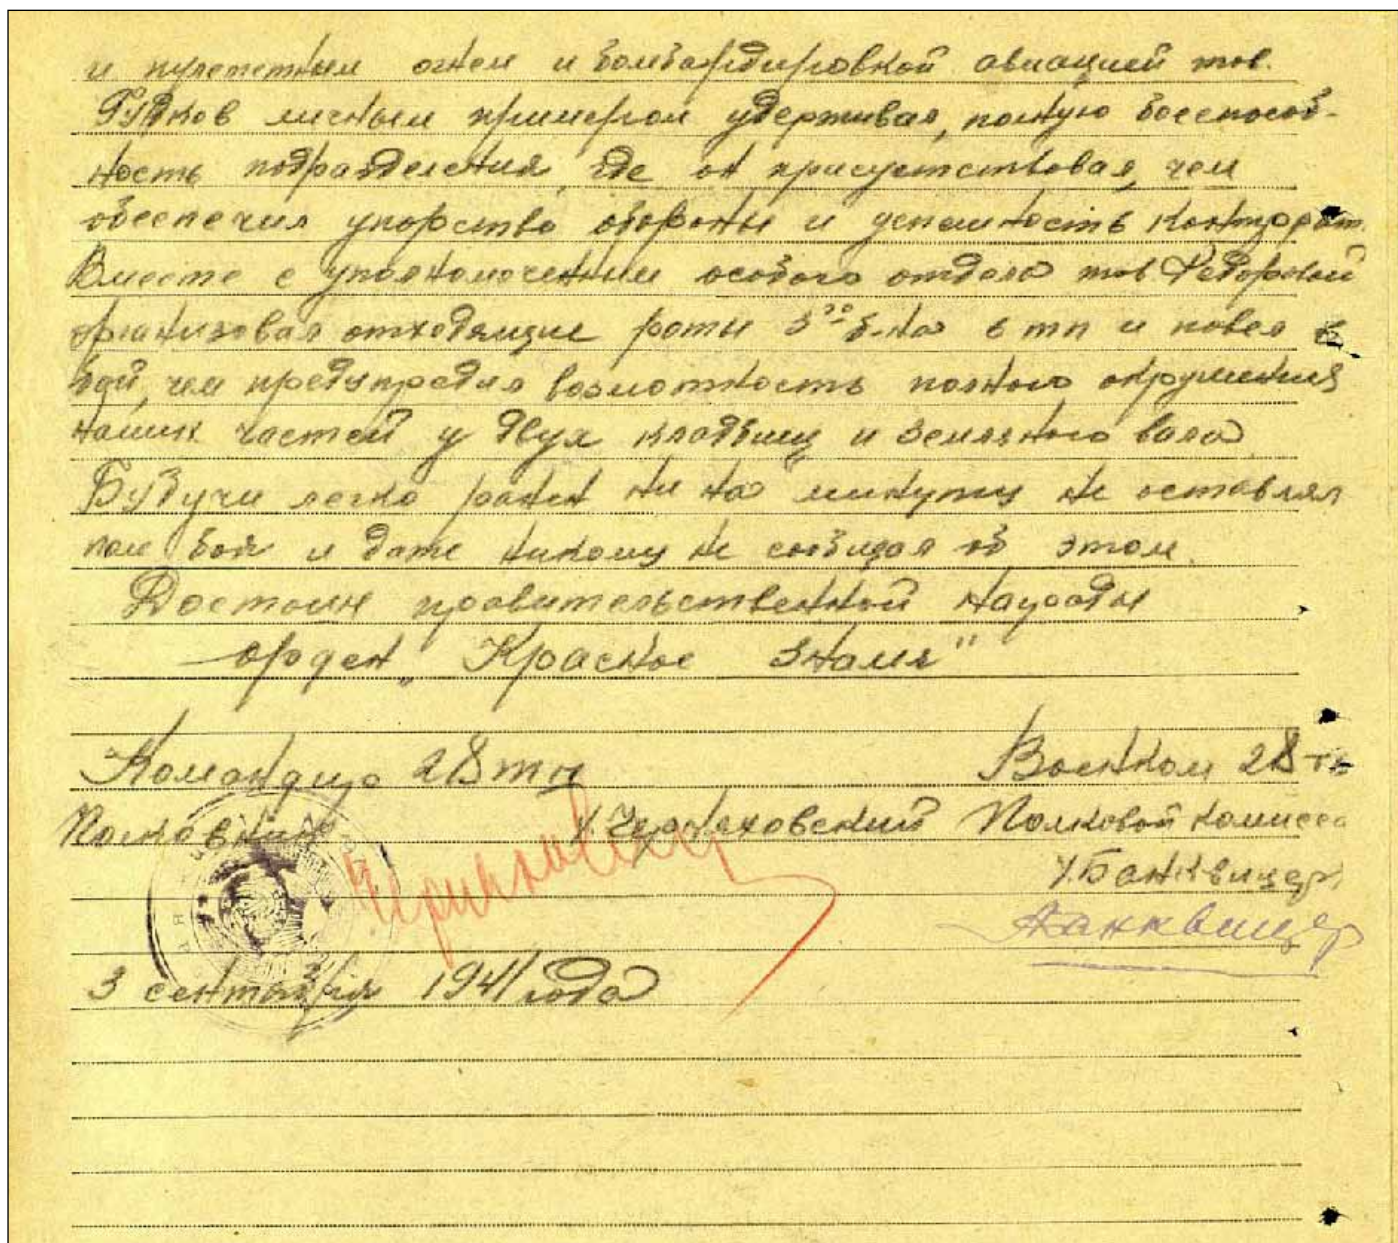 и пулеметным огнем и бомбардировкой авиацией тов.
Гудков личным примером удерживал, полную боеспособ-
ность подразделения, где он присутствовал, чем
обеспечил упорство обороны и успешность контратак.
Вместе с уполномоченным особого отдела тов. Федоровой
организовал отходящие роты 3го б-на 6 тп и повел в
бой, чем предупредил возможность полного окружения
наших частей у двух кладбищ и земляного вала.
Будучи легко ранен ни на минуту не оставлял
поле боя и даже никому не сообщал об этом.
Достоин правительственной награды
орден „Красное Знамя"
Командир 28 тд Военком 28 тд
Полковник /Черняховский Полковой комисса
/Банквицер/
Банквицер
3 сентября 1941 года